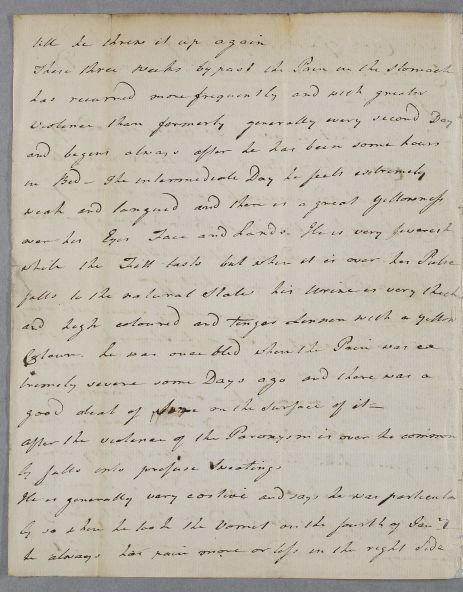 till he threw it up again
These three weeks by past the Pain in the Stomach
has returned more frequently and with greater
violence than formerly generally every second Day
and begins always after he has been some hours
in Bed – The intermediate Day he feels extremely
weak and languid and there is a great yellowness
over his Eyes Face and hands. He is very feverish
while the Fitt lasts but when it is over his Pulse
falls to the natural State his Urine is very thick
and high coloured and tinges Linnen with a yellow
Colour. he was once bled when the Pain was ex
tremely severe some Days ago and there was a
good deal of on the surface of it –
after the violence of the Paroxysm is over he common
ly falls into profuse Sweatings
He is generally very costive and says he was particular
ly so when he took the vomit on the fourth of Janry
he always has pain more or less in the right Side